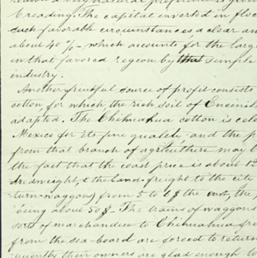 breeding. The capital invested in floc
such favorable circumstances a clear an
about 40 % - which accounts for the larg
in that favored region by this simple
industry.
Another fruitful source of profit consists
cotton for which the rich soil of
adapted. The Chihuahua cotton is cele
Mexico for its fine quality and the p
from that branch of agriculture may b
the fact that the coast price is about 1
weight, & the land-freight to the city
turn waggons) from 5 to 6 ¢ the cwt, the
being about 50 ¢. The trains of waggons
of merchandise to Chihuahua fr
from the sea-board are forced to return
their owners are glad enough to